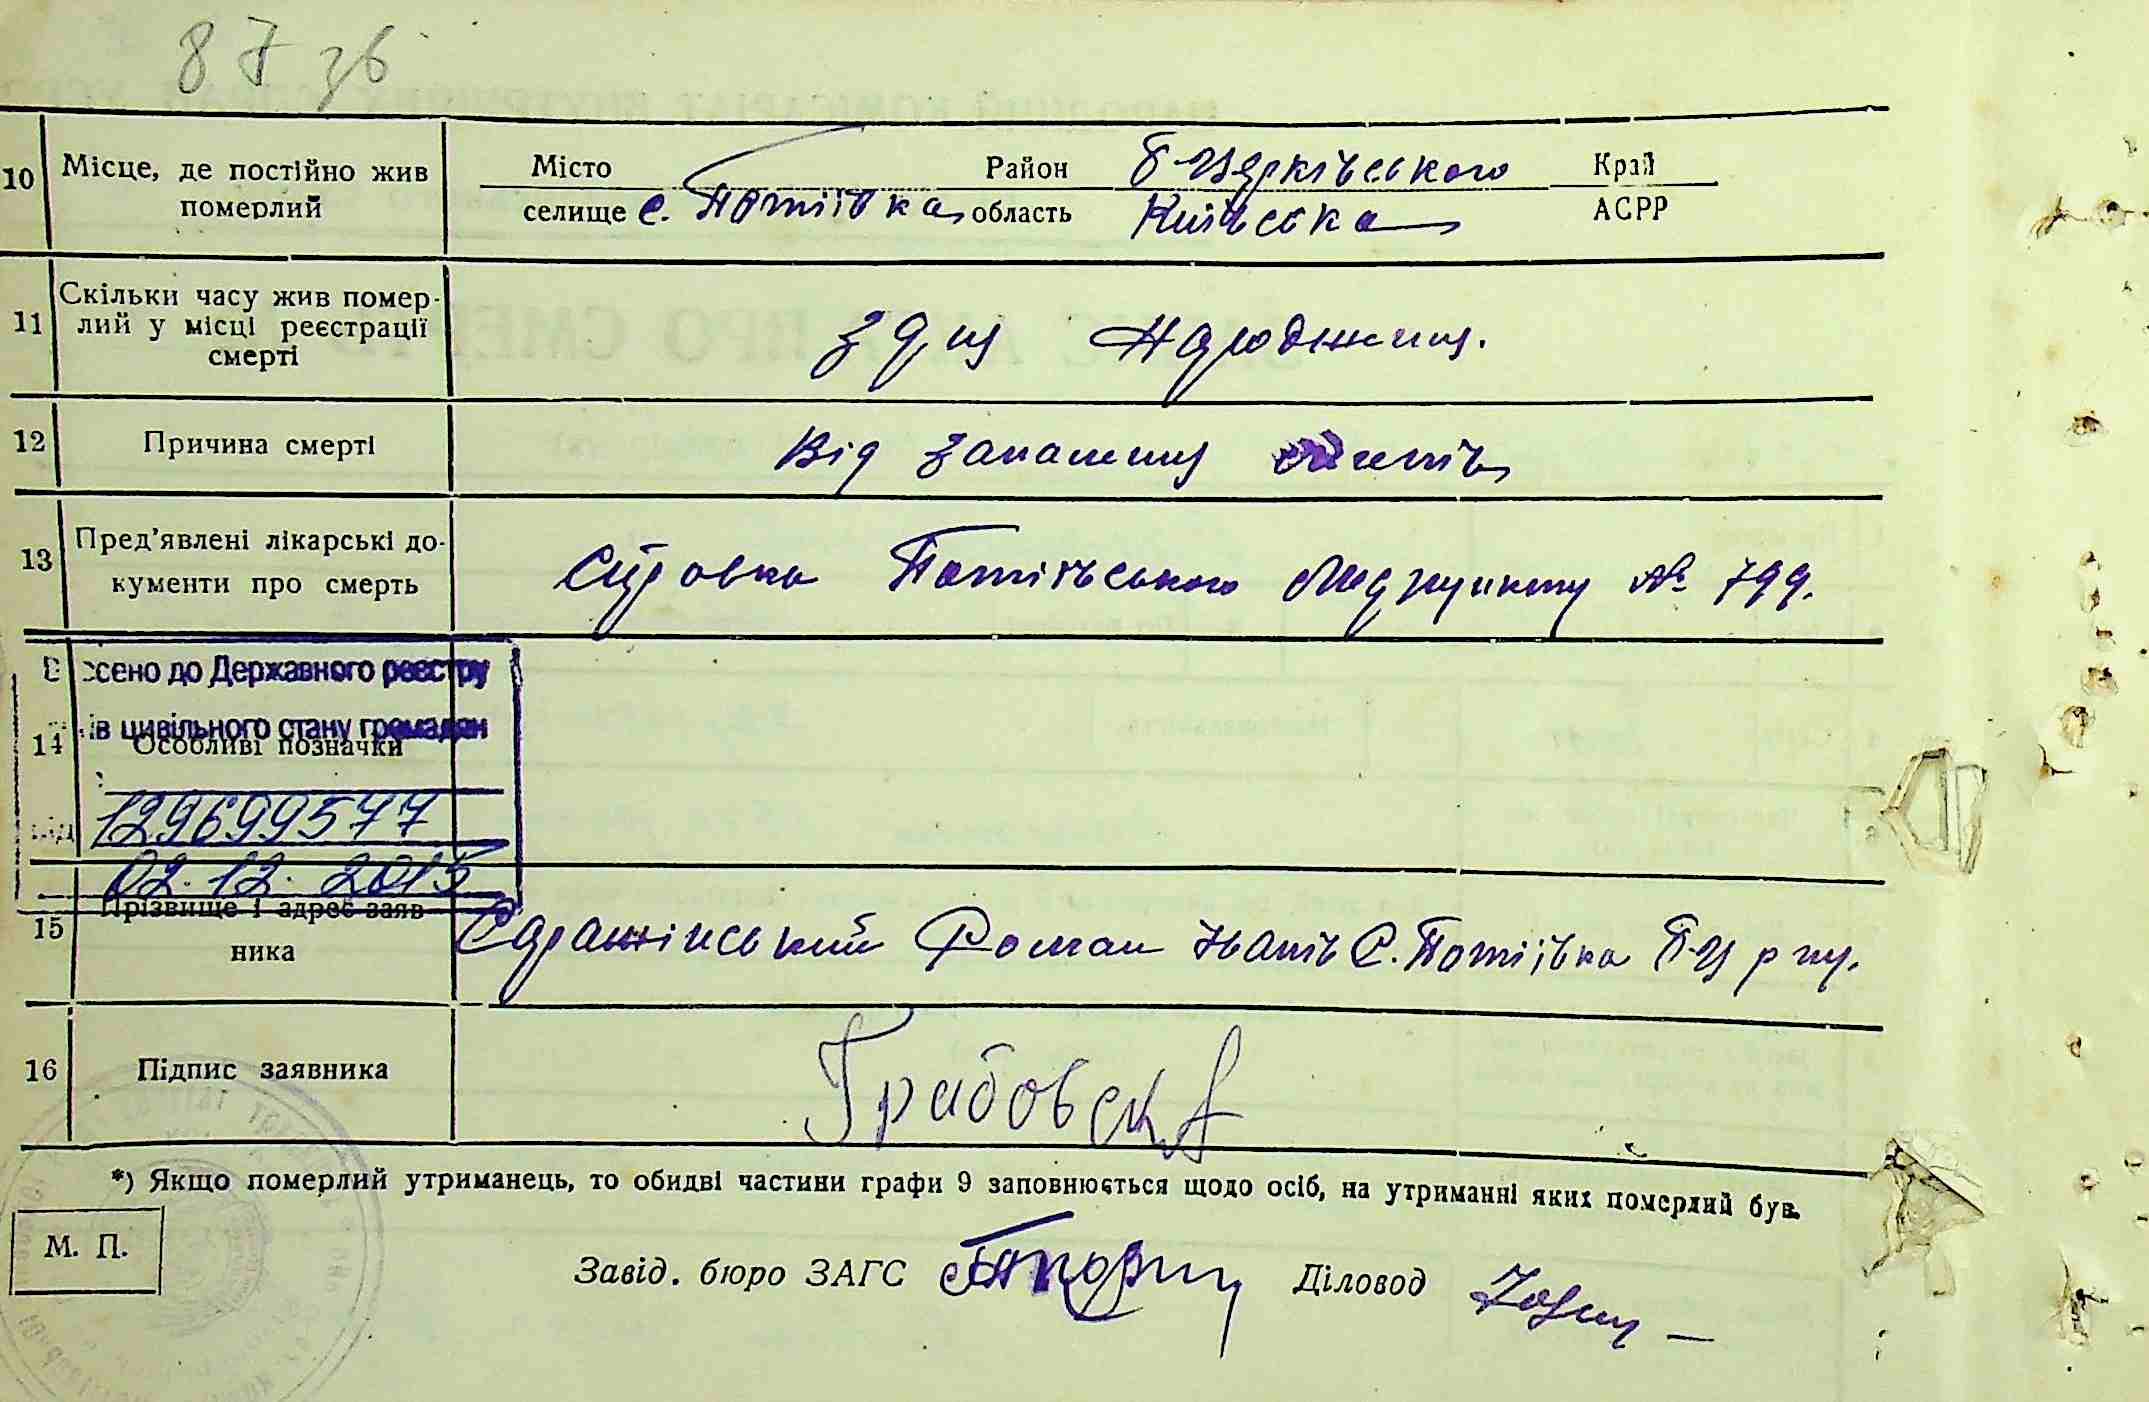 87 зв
10 Місце, де постійно жив померлий
Місто Район Б-Церківського Край
селище с. Потіївка область Київська АСРР
11 Скільки часу жив помер-
лий у місці реєстрації
смерті
з дня народження.
12 Причина смерті
Від запалення легенів
13 Пред'явлені лікарські до-
кументи про смерть
Справка Потіївського Медпункту № 799.
сено до Державного реєстру
ів цивільного стану громадян
14 Особливі позначки
129699577
від 02.12.2015
15 Прізвище і адрес заяв-
ника
Роман Іванів С. Потіївка Б-Ц р-ну.
16 Підпис заявника
Грабовска
*) Якщо померлий утриманець, то обидві частини графи 9 заповнюється щодо осіб, на утриманні яких померлий був.
М. П.
Завід. бюро ЗАГС Діловод